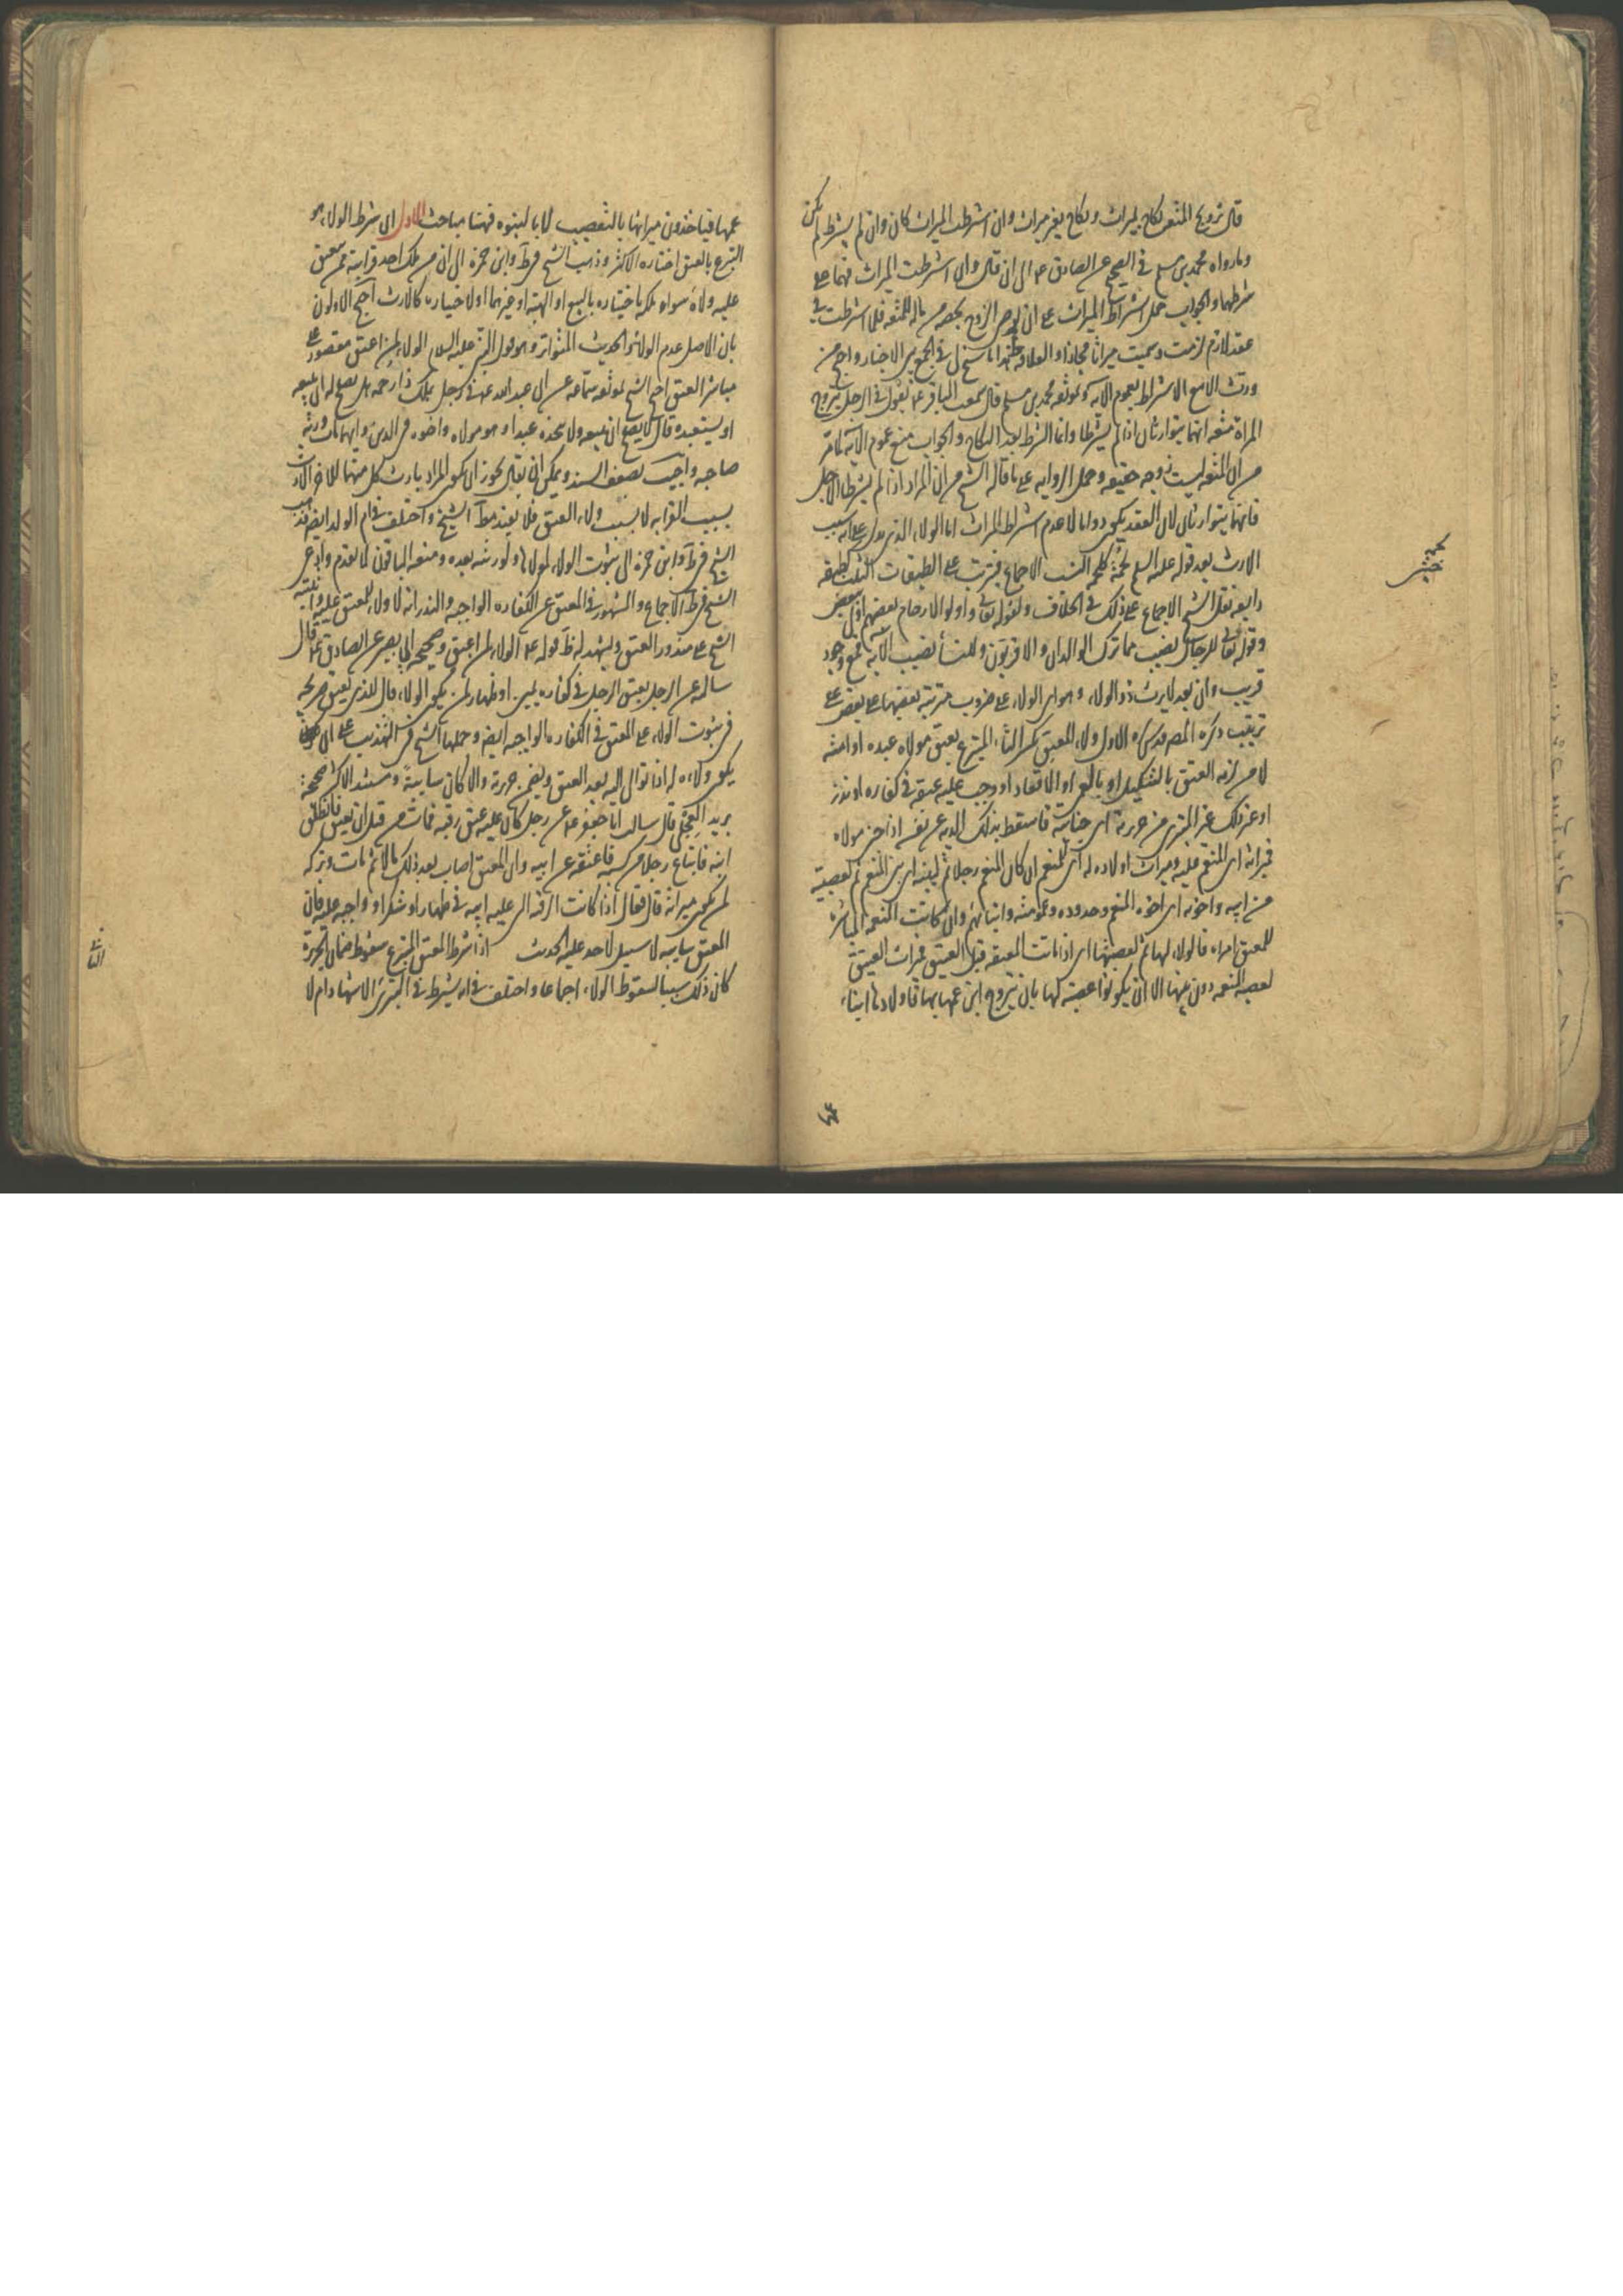 قال تزويج المتعة نكاح بميراث ونكاح بغير ميراث وان اشترطت الميراث كان وان لم يشترط لم يكن
وما رواه محمد بن مسلم في الصحيح عن الصادق ع الى ان قال وان اشترطت الميراث فهما على
شرطهما والجواب حمل اشتراط الميراث على ان الزوج بحصة من ماله للمتعة فلما اشترطت في
عقد لازم لزمت وسميت ميراثا مجازا و العلاقة هذا ما سنح لي في الجمع بين الاخبار واحتج من
ورث الا مع الاشتراط بعموم الآية وموثقة محمد بن مسلم قال سمعت الباقر ع يقول في الرجل يتزوج
المراة متعة انهما يتوارثان اذا لم يشترطا وانما الشرط بعد النكاح والجواب منع عموم الآية لما مر
من ان المتعة ليست زوجة حقيقة وحمل الرواية على ما قاله الشيخ من ان المراد اذا لم يشترطا الاجل
فانهما يتوارثان لان العقد يكون دواما لا عدم اشتراط الميراث اما الولاء الذي يدل على انه سبب
الارث بعد قوله عليه السلم لحمة كلحمة النسب الاجماع فيترتب على الطبقات الثلث كطبقة
رابعة نقل الشيخ الاجماع على ذلك في الخلاف ولقوله تعالى واولوا الارحام بعضهم اولى ببعض
وقوله تعالى للرجال نصيب مما ترك الوالدان والاقربون وللنساء نصيب الآية فمع وجود
قريب وان بعد لا يرث ذو الولاء وهو اي الولاء على ضروب مترتبة بعضها على بعض على
ترتيب ذكره المصنف قدس سره الاول ولاء المعتق بكسر التاء المتبرع بعتق مولاه عبده او امته
لا من لزمه العتق بالتنكيل او بالعمى او الاقعاد او وجب عليه عتقه في كفارة او نذر
او غير ذلك غير المتبري من جريرته اي جنايته فاسقط بذلك الدية عن نفسه اذا جنى مولاه
فميراثه اي المنعم عليه وميراث اولاده له اي للمنعم ان كان المنعم رجلا ثم لبنيه اي بني المنعم ثم لعصبته
من ابيه واخوته اي اخوة المنعم وجدوده وعمومته وابنائهم وان كانت المنعمة المباشرة
للعتق امراة فالولاء لها ثم لعصبتها اي اذا ماتت المعتقة قبل العتيق فميراث العتيق
لعصبة المنعمة دون بنيها الا ان يكونوا عصبة لها بان تتزوج ابن عمها بها فاولادها ابناء
عمها فياخذون ميراثها بالتعصيب لا بالبنوة فهنا مباحث الاول ان شرط الولاء هو
التبرع بالعتق اختاره الاكثر وذهب الشيخ في ط وابن حمزة الى ان من ملك احد قرابته ممن يعتق
عليه ولاؤه سواء ملكه باختياره بالبيع او الهبة او غيرهما او لا باختياره كالارث احتج الاولون
بان الاصل عدم الولاء والحديث المتواتر وهو قول النبي عليه السلام الولاء لمن اعتق مقصور على
مباشر العتق احتج الشيخ بموثقة سماعة عن ابي عبد الله ع في رجل يملك ذا رحمه هل يصلح له ان يبيعه
او يستعبده قال لا يصلح ان يبيعه ولا يتخذه عبدا وهو مولاه واخوه في الدين وايهما مات ورثه
صاحبه واجيب بضعف السند ويمكن ان يقال يجوز ان يكون المراد بارث كل منهما للآخر الارث
بسبب القرابة لا بسبب ولاء العتق فلا يفيد مط الشيخ واختلف في ام الولد ايضا فذهب
الشيخ في ط وابن حمزة الى ثبوت الولاء لمولاها ولورثته بعده ومنعه الباقون لما تقدم وادعى
الشيخ في ط الاجماع والمشهور في المعتق عن الكفارة الواجبة والنذر انه لا ولاء للمعتق عليه
الشيخ على منذور العتق ويشهد له ظ قوله ع الولاء لمن اعتق وصحيحة ابي بصير عن الصادق ع قال
سالته عن الرجل يعتق الرجل في كفارة يمين او ظهار لمن يكون الولاء قال للذي يعتق صريحة
في ثبوت الولاء على المعتق في الكفارة الواجبة ايضا وحملها الشيخ في التهذيب على ان
يكون ولاءه له اذا توالى اليه بعد العتق ويضمن جريرته والا كان سايبة ومستند الاكثر صحيحة
بريد العجلي قال سالت ابا جعفر ع عن رجل كان عليه عتق رقبة فمات من قبل ان يعتق فانطلق
ابنه فابتاع رجلا من كسبه فاعتقه عن ابيه وان المعتق اصاب بعد ذلك مالا ثم مات وتركه
لمن يكون ميراثه قال فقال اذا كانت الرقبة التي على ابيه في ظهار او شكر او واجبة عليه فان
المعتق سايبة لا سبيل لاحد عليه الحديث اذا شرط المعتق المتبرع سقوط ضمان الجريرة
كان ذلك سببا لسقوط الولاء اجماعا واختلف في انه يشترط في التبري الاشهاد ام لا